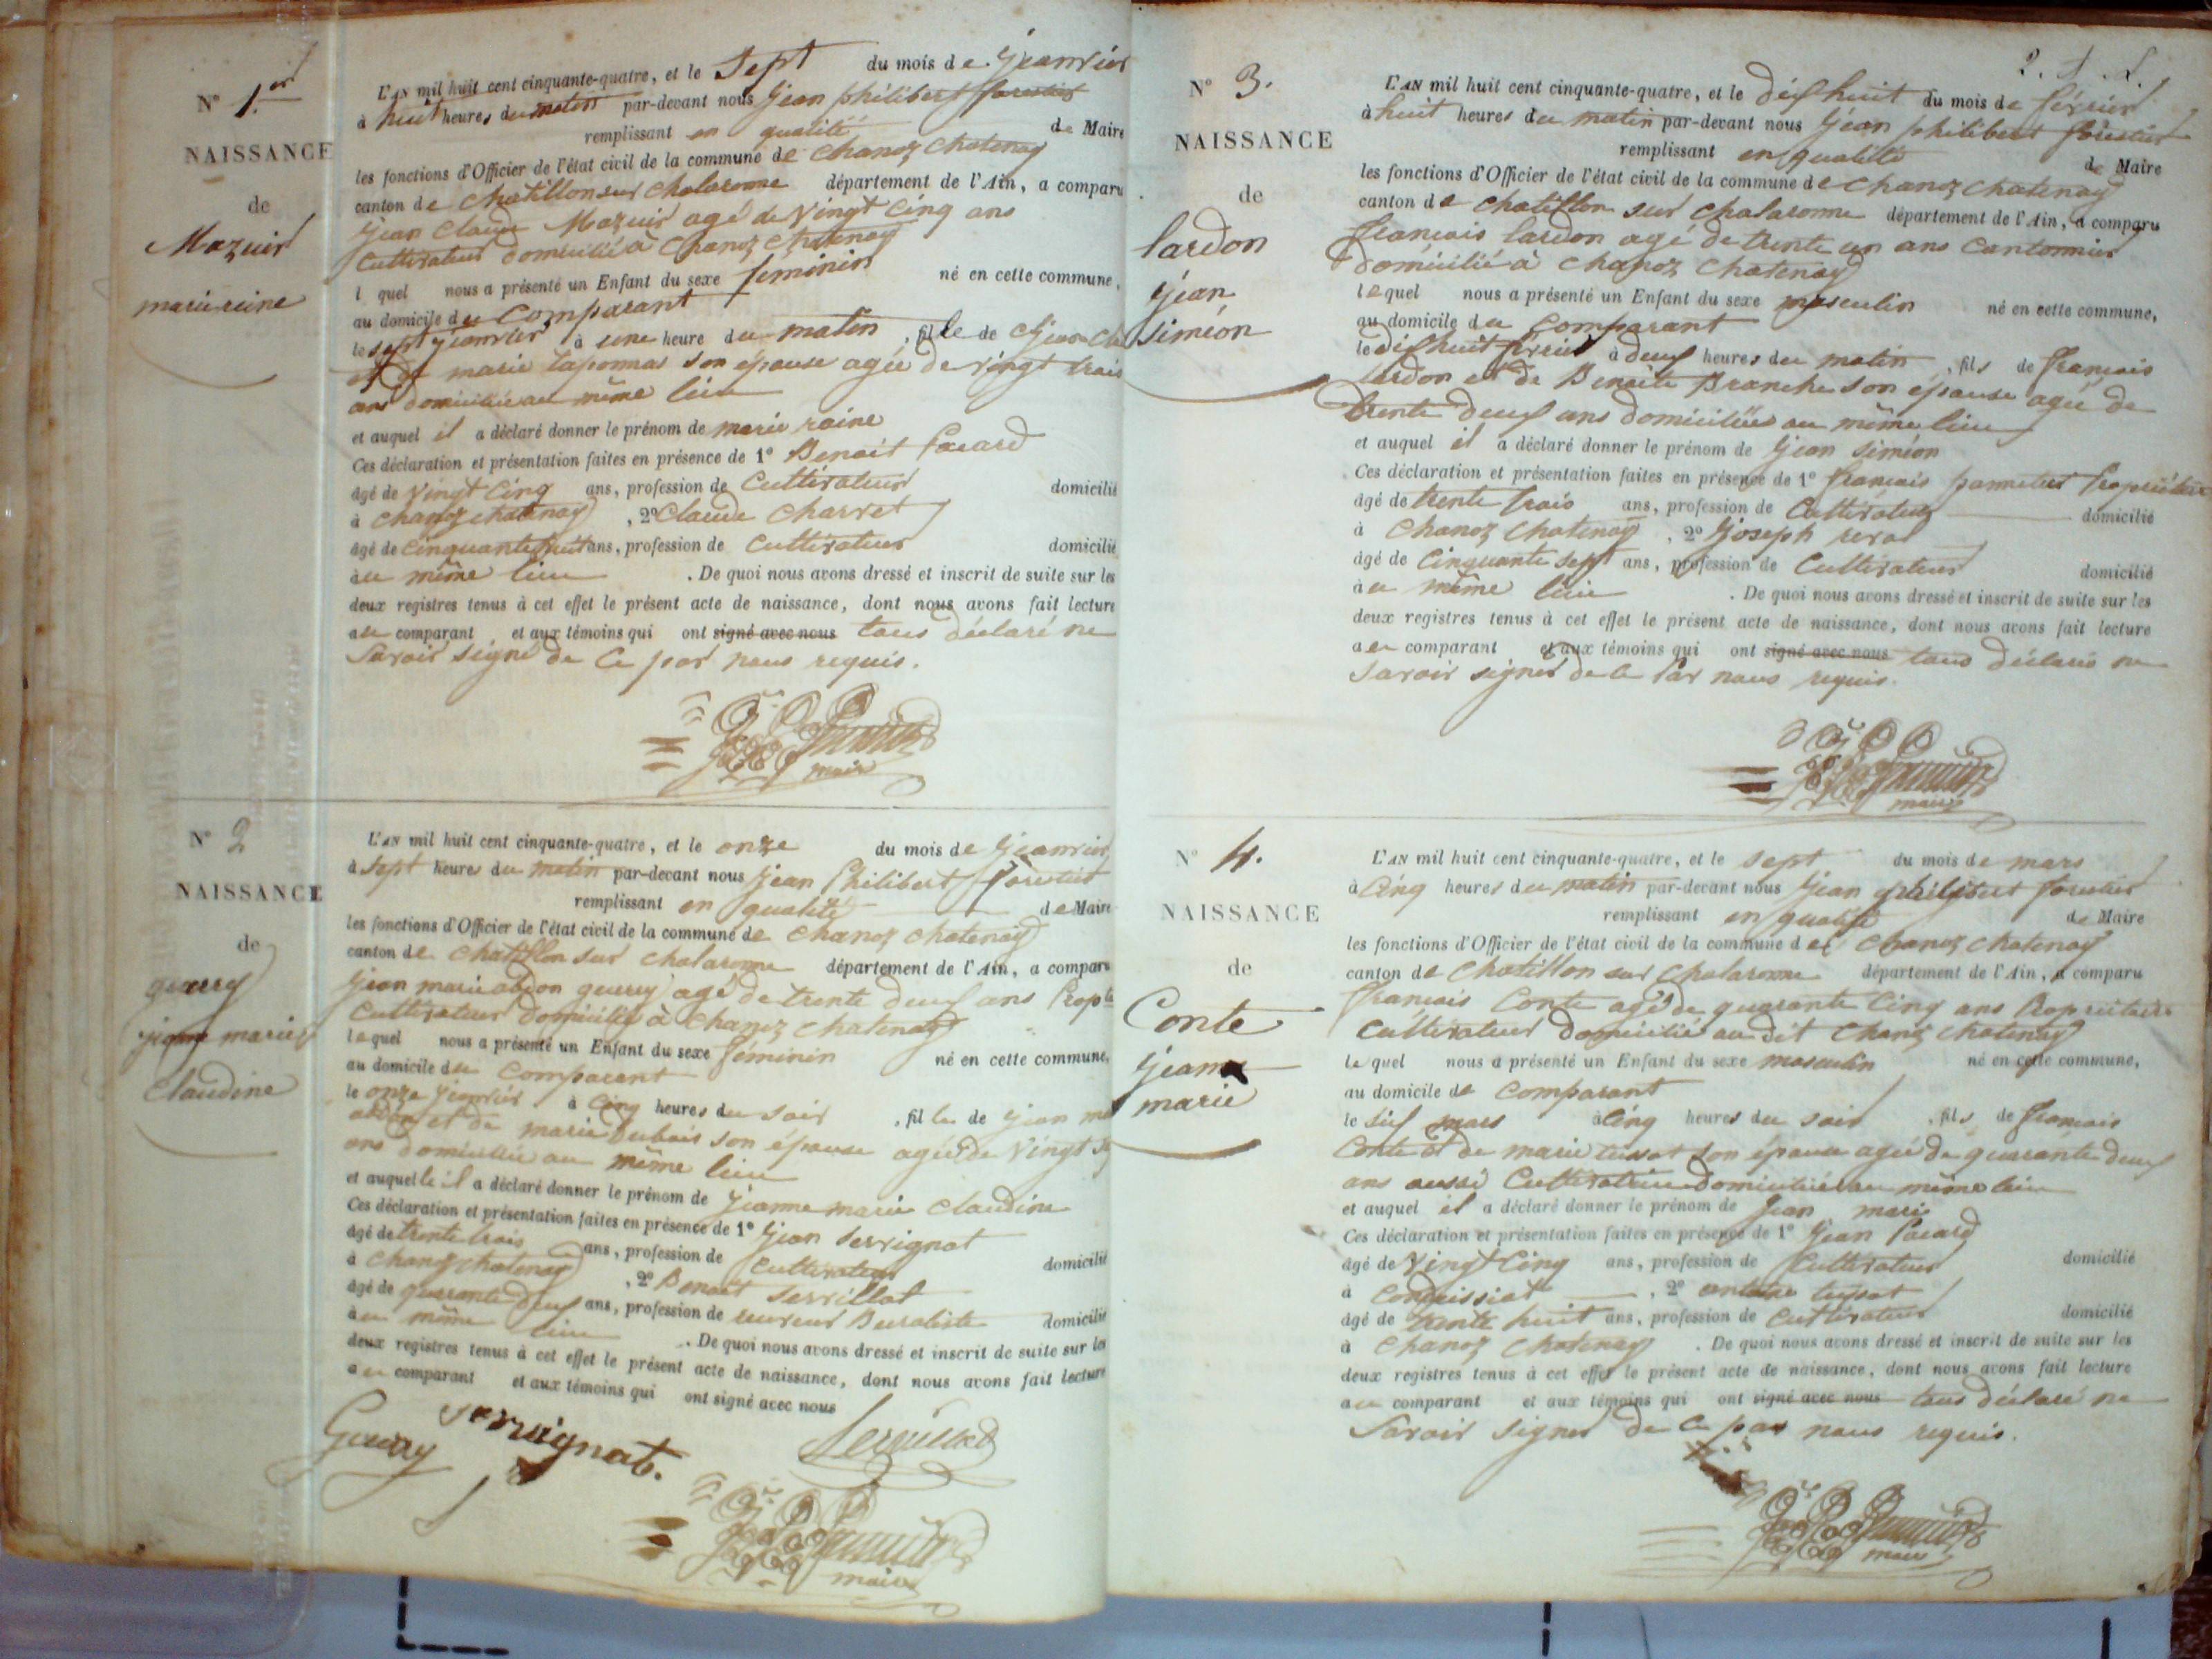 N° 1.er
NAISSANCE
de
Mazuir
marie reine
L'AN mil huit cent cinquante-quatre, et le Sept du mois de Jeanvier
à huit heures du matin par-devant nous Jean philibert forestier
remplissant en qualité de Maire
les fonctions d'Officier de l'état civil de la commune de Chanoz Chatenay
canton de Chatillon sur Chalaronne département de l'Ain, a comparu
Jean Claude Mazuir agé de Vingt Cinq ans
Cultivateur domicilié à Chanoz Chatenay
l quel nous a présenté un Enfant du sexe féminin né en cette commune,
au domicile du Comparant
le sept jeanvier à une heure du matin, fille de Jean Cla
et de marie laponnas son épouse agée de vingt trois
ans domiciliée au même lieu
et auquel il a déclaré donner le prénom de marie raine
Ces déclaration et présentation faites en présence de 1° Benoit Pacard
âgé de Vingt Cinq ans, profession de Cultivateur domicilié
à chanoz chatenay, 2° Claude Charvet
âgé de Cinquante huit ans, profession de Cultivateur domicilié
au même lieu . De quoi nous avons dressé et inscrit de suite sur les
deux registres tenus à cet effet le présent acte de naissance, dont nous avons fait lecture
au comparant, et aux témoins qui ont signé avec nous tous déclaré ne
Savoir signé de Ce par nous requis.
maire
N° 2
NAISSANCE
de
guerry
jeanne marie
Claudine
L'AN mil huit cent cinquante-quatre, et le onze du mois de Jeanvier
à sept heures du matin par-devant nous Jean Philibert Forestier
remplissant en qualité de Maire
les fonctions d'Officier de l'état civil de la commune de Chanoz Chatenay
canton de Chatillon sur Chalaronne département de l'Ain, a comparu
Jean marie abdon guerry agé de trente deux ans Prop.re
Cultivateur domicilié à Chanoz Chatenay
lequel nous a présenté un Enfant du sexe féminin né en cette commune,
au domicile du Comparant
le onze Jeanvier à Cinq heures du soir, fille de Jean ma
abdon et de marie Dubois son épouse agée de Vingt
ans domiciliée au même lieu
et auquelle il a déclaré donner le prénom de jeanne marie Claudine
Ces déclaration et présentation faites en présence de 1° Jean Servignat
âgé de trente trois ans, profession de Cultivateur domicilié
à Chanoz Chatenay, 2° Benoit Servillat
âgé de quarante deux ans, profession de Buraliste domicilié
au même lieu . De quoi nous avons dressé et inscrit de suite sur les
deux registres tenus à cet effet le présent acte de naissance, dont nous avons fait lecture
au comparant et aux témoins qui ont signé avec nous
Guerry servignat. Servillat
maire
2.
N° 3.
NAISSANCE
de
lardon
Jean
siméon
L'AN mil huit cent cinquante-quatre, et le dix huit du mois de février
à huit heures du matin par-devant nous Jean philibert forestier
remplissant en qualité de Maire
les fonctions d'Officier de l'état civil de la commune de Chanoz Chatenay
canton de Chatillon sur Chalaronne département de l'Ain, a comparu
francois lardon agé de trente un ans Cantonnier
domicilié à Chanoz Chatenay
lequel nous a présenté un Enfant du sexe masculin né en cette commune,
au domicile du Comparant
le dix huit février à deux heures du matin, fils de francois
lardon et de Benoite Branche son épouse agée de
trente deux ans domiciliée au même lieu
et auquel il a déclaré donner le prénom de Jean siméon
Ces déclaration et présentation faites en présence de 1° francois Propriétaire
âgé de trente trois ans, profession de Cultivateur domicilié
à Chanoz Chatenay, 2° Joseph
âgé de Cinquante sept ans, profession de Cultivateur domicilié
au même lieu . De quoi nous avons dressé et inscrit de suite sur les
deux registres tenus à cet effet le présent acte de naissance, dont nous avons fait lecture
au comparant et aux témoins qui ont signé avec nous tous déclaré ne
Savoir signer de Ce Par nous requis.
maire
N° 4.
NAISSANCE
de
Conte
Jean
marie
L'AN mil huit cent cinquante-quatre, et le sept du mois de mars
à Cinq heures du matin par-devant nous Jean philibert forestier
remplissant en qualité de Maire
les fonctions d'Officier de l'état civil de la commune de Chanoz Chatenay
canton de Chatillon sur Chalaronne département de l'Ain, a comparu
francois Conte agé de quarante Cinq ans Propriétaire
Cultivateur domicilié au dit Chanoz Chatenay
lequel nous a présenté un Enfant du sexe masculin né en cette commune,
au domicile de Comparant
le six mars à Cinq heures du soir, fils de francois
Conte et de marie tissot son épouse agée de quarante deux
ans aussi Cultivatrice domiciliée au même lieu
et auquel il a déclaré donner le prénom de Jean marie
Ces déclaration et présentation faites en présence de 1° Jean Pacard
âgé de Vingt Cinq ans, profession de Cultivateur domicilié
à Condeissiat, 2° antoine tissot
âgé de trente huit ans, profession de Cultivateur domicilié
à Chanoz Chatenay . De quoi nous avons dressé et inscrit de suite sur les
deux registres tenus à cet effet le présent acte de naissance, dont nous avons fait lecture
au comparant et aux témoins qui ont signé avec nous tous déclaré ne
Savoir signer de Ce par nous requis.
maire